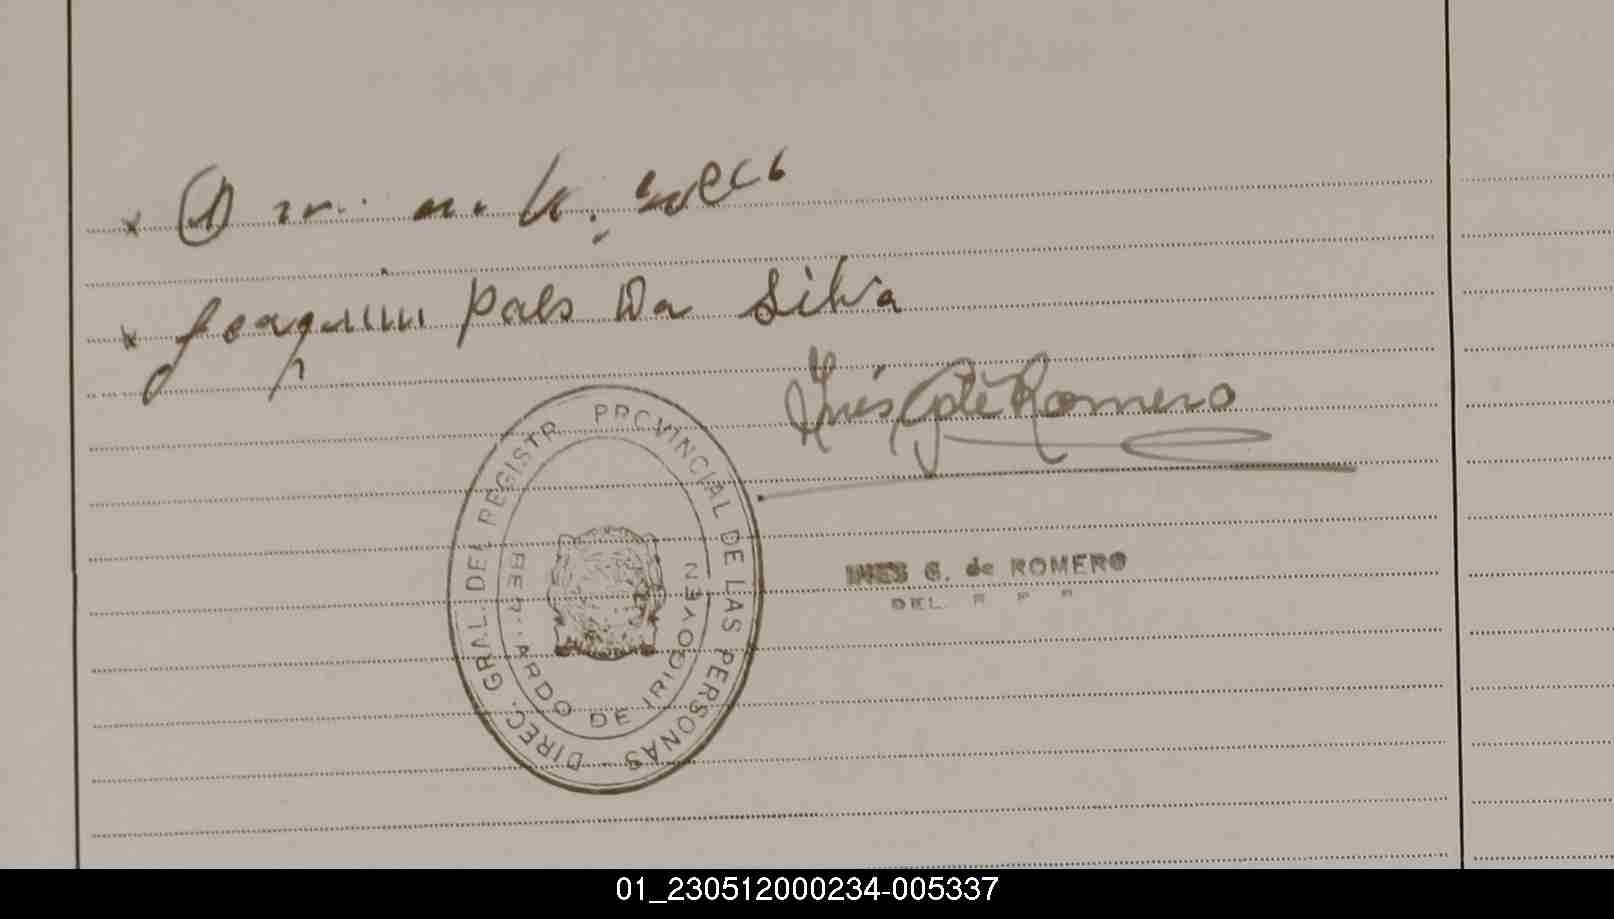 Joaquim Paes Da Silva
Inés G. de Romero
DIREC. GRAL. DEL REGISTR PROVINCIAL DE LAS PERSONAS
BER ARDO DE IRIGOYEN
INES G. de ROMERO
DEL. R P P
01_230512000234-005337